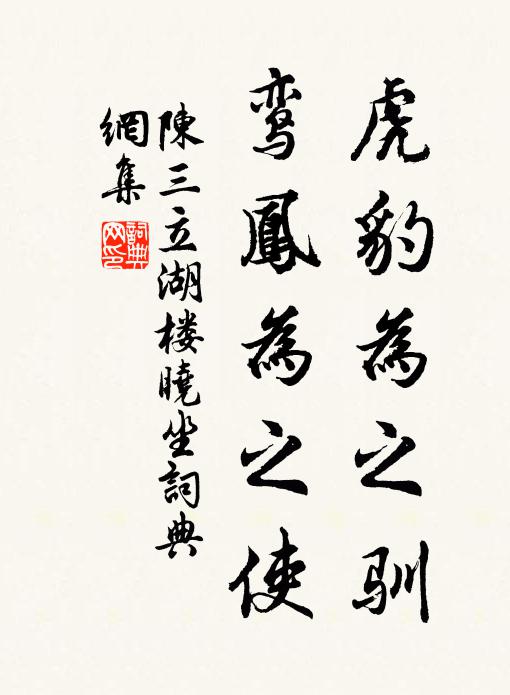 虎豹為之驯
鸾鳳為之使
陳三立湖楼曉坐詞典
網集
詞典网印